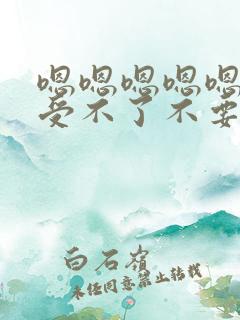 嗯嗯嗯嗯嗯
受不了不要
白石嶺
未经同意禁止转载